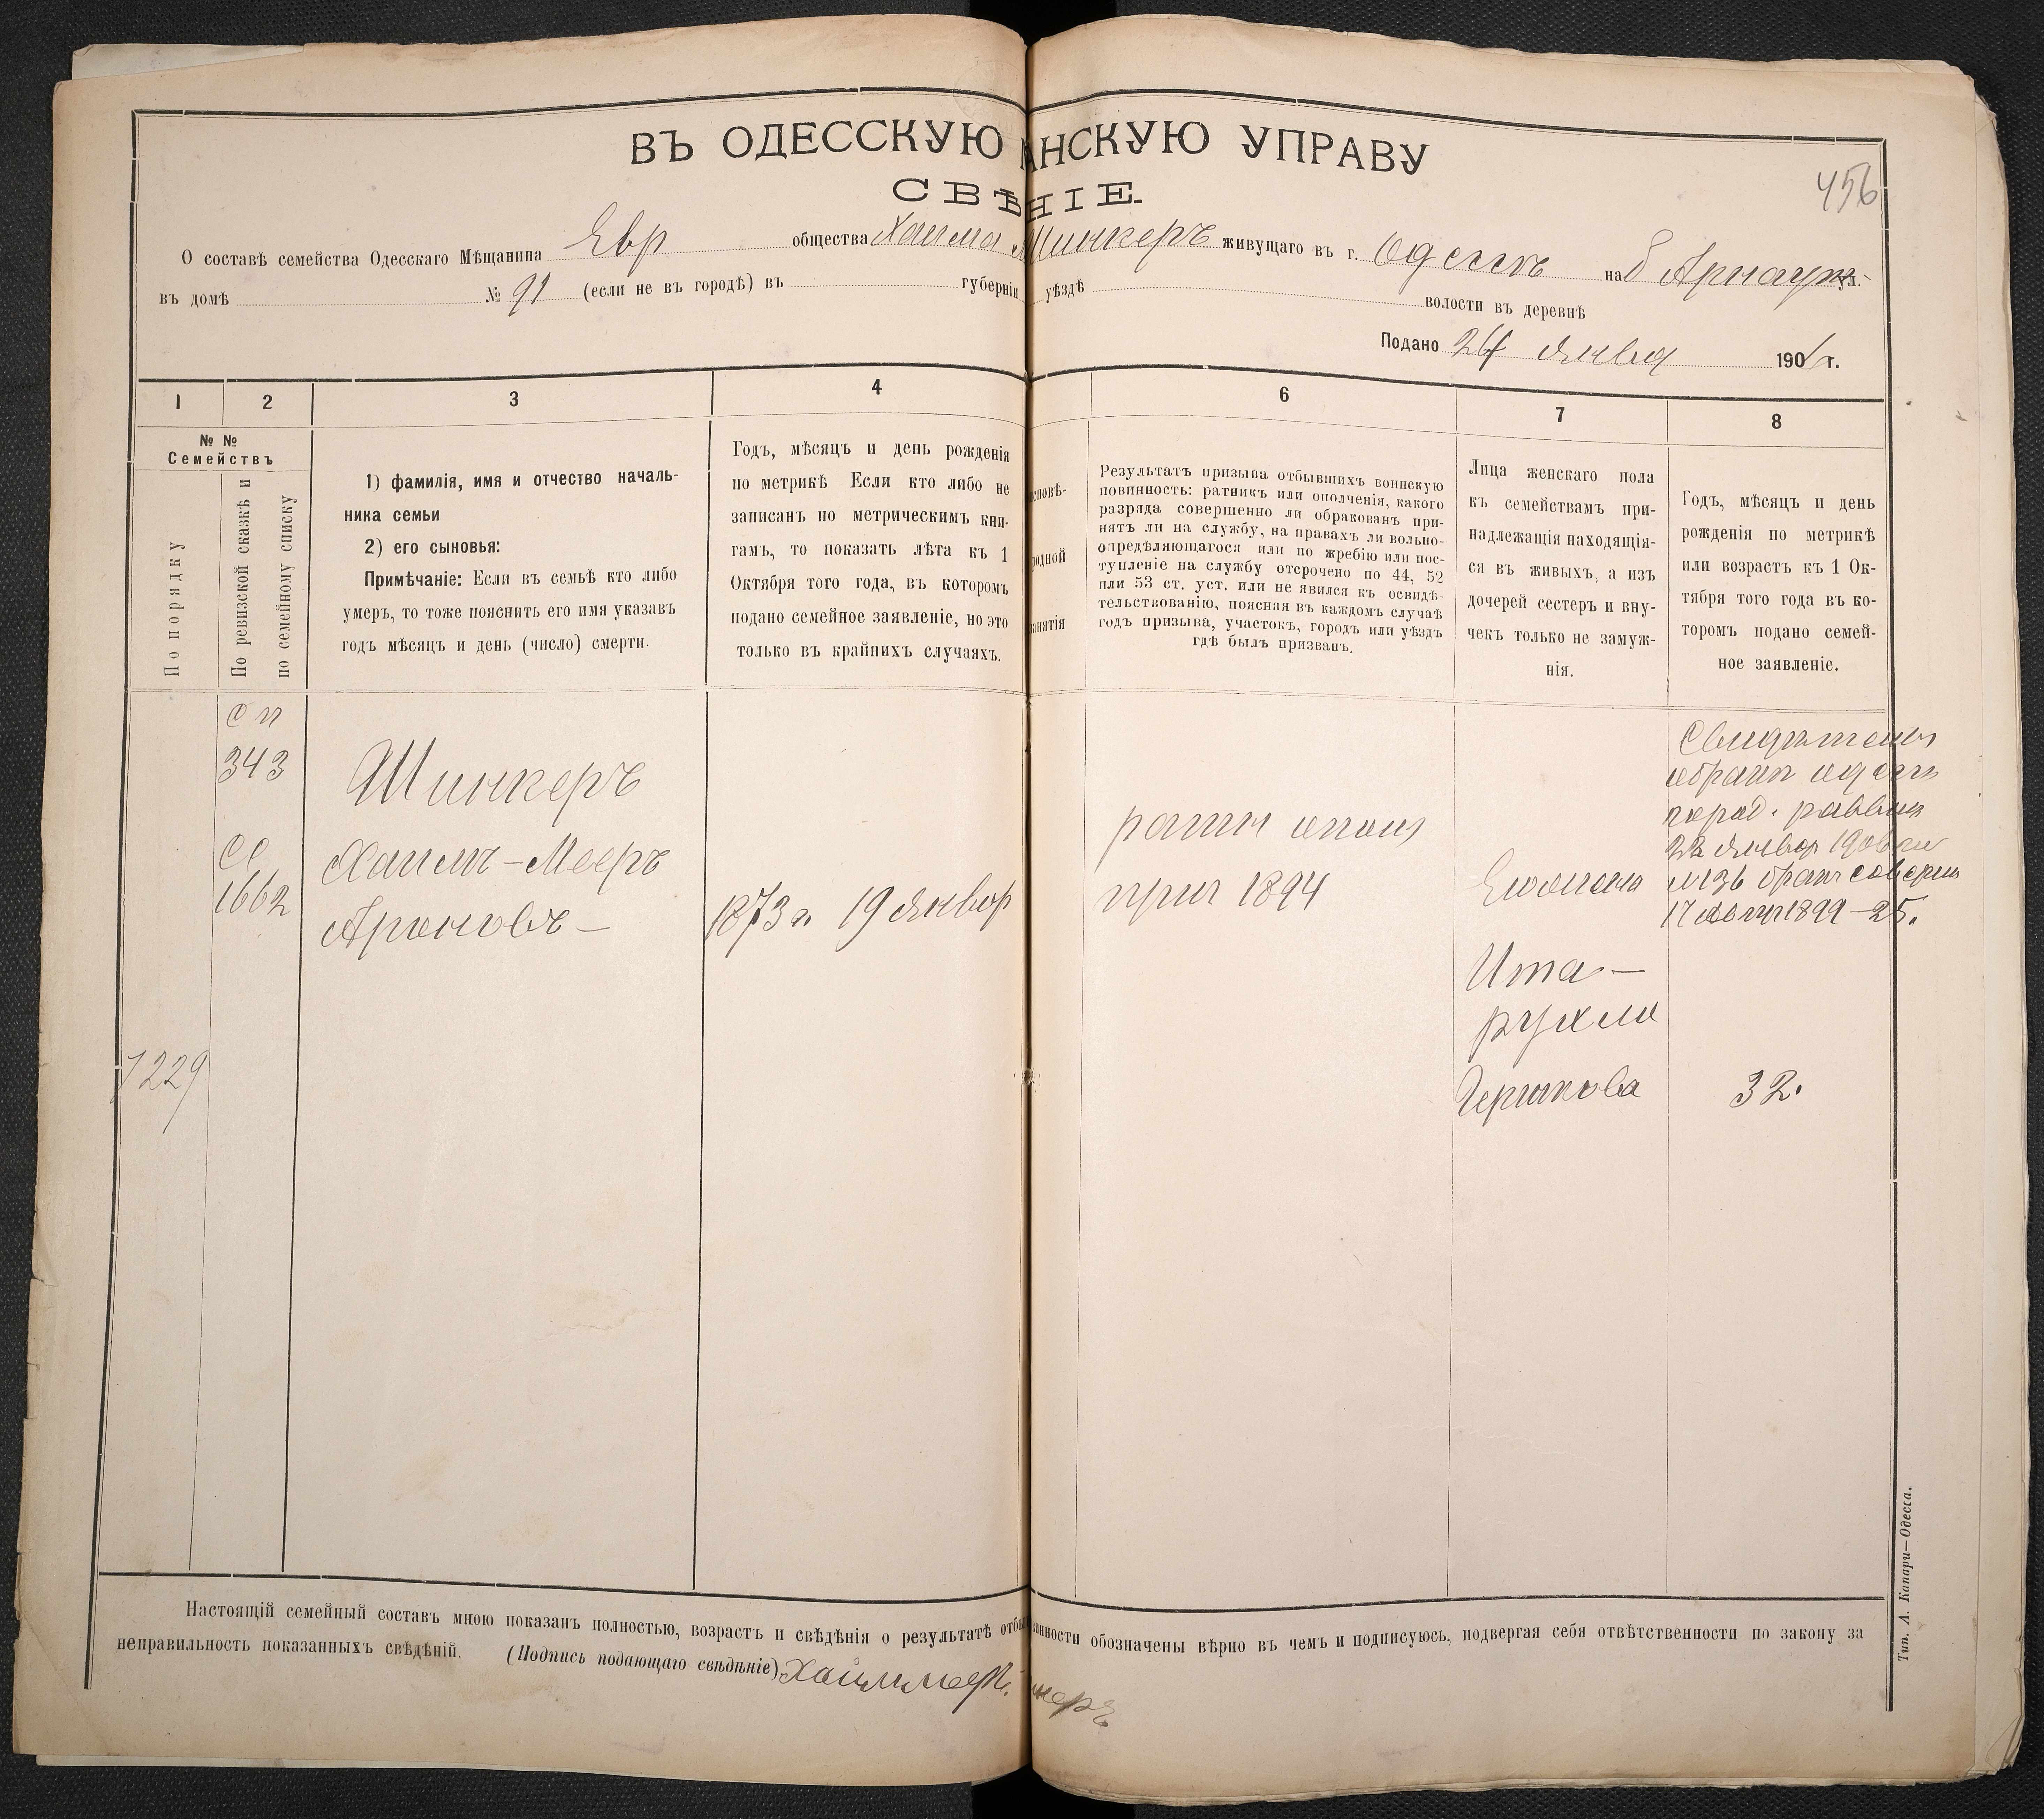 ВЪ ОДЕССКУЮ АНСКУЮ УПРАВУ
СВѢНІЕ.
456
О составѣ семейства Одесскаго Мѣщанина Евр общества Хаима Шинкеръ живущаго въ г. Одессѣ на Б Арнаут ул.
въ домѣ № 91 (если не въ городѣ) въ губерніи уѣздѣ волости въ деревнѣ
Подано 24 Января 190 г.
1 2 3 4 6 7 8
№ №
Семействъ
По порядку
По ревизской сказкѣ и
по семейному списку
1) фамилія, имя и отчество началь-
ника семьи
2) его сыновья:
Примѣчаніе: Если въ семьѣ кто либо
умеръ, то тоже пояснить его имя указавъ
годъ мѣсяцъ и день (число) смерти.
Годъ, мѣсяцъ и день рожденія
по метрикѣ Если кто либо не
записанъ по метрическимъ кни-
гамъ, то показать лѣта къ 1
Октября того года, въ которомъ
подано семейное заявленіе, но это
только въ крайнихъ случаяхъ.
сповѣ-
родной
анятія
Результатъ призыва отбывшихъ воинскую
повинность: ратникъ или ополченія, какого
разряда совершенно ли обракованъ при-
нятъ ли на службу, на правахъ ли вольно-
опредѣляющагося или по жребію или пос-
тупленіе на службу отсрочено по 44, 52
или 53 ст. уст. или не явился къ освидѣ-
тельствованію, поясняя въ каждомъ случаѣ
годъ призыва, участокъ, городъ или уѣздъ
гдѣ былъ призванъ.
Лица женскаго пола
къ семействамъ при-
надлежащія находящія-
ся въ живыхъ, а изъ
дочерей сестеръ и вну-
чекъ только не замуж-
нія.
Годъ, мѣсяцъ и день
рожденія по метрикѣ
или возрастъ къ 1 Ок-
тября того года въ ко-
торомъ подано семей-
ное заявленіе.
с п
343
СС
1662
7229
Шинкеръ
Хаимъ-Мееръ
Ароновъ –
1873 г. 19 Январ
ратн ополч
приз 1894
Его жена
Ита –
рухля
Гершкова
Свидѣтель
о бракѣ одесск
город. раввин
22 Январ 1906
№136 брак соверш
17 1899 – 25.
32.
Настоящій семейный составъ мною показанъ полностью, возрастъ и свѣдѣнія о результатѣ отбы винности обозначены вѣрно въ чемъ и подписуюсь, подвергая себя отвѣтственности по закону за
неправильность показанныхъ свѣдѣній. (Подпись подающаго свѣдѣніе) Хаимъ Мееръ керъ
Тип. А. Капари—Одесса.